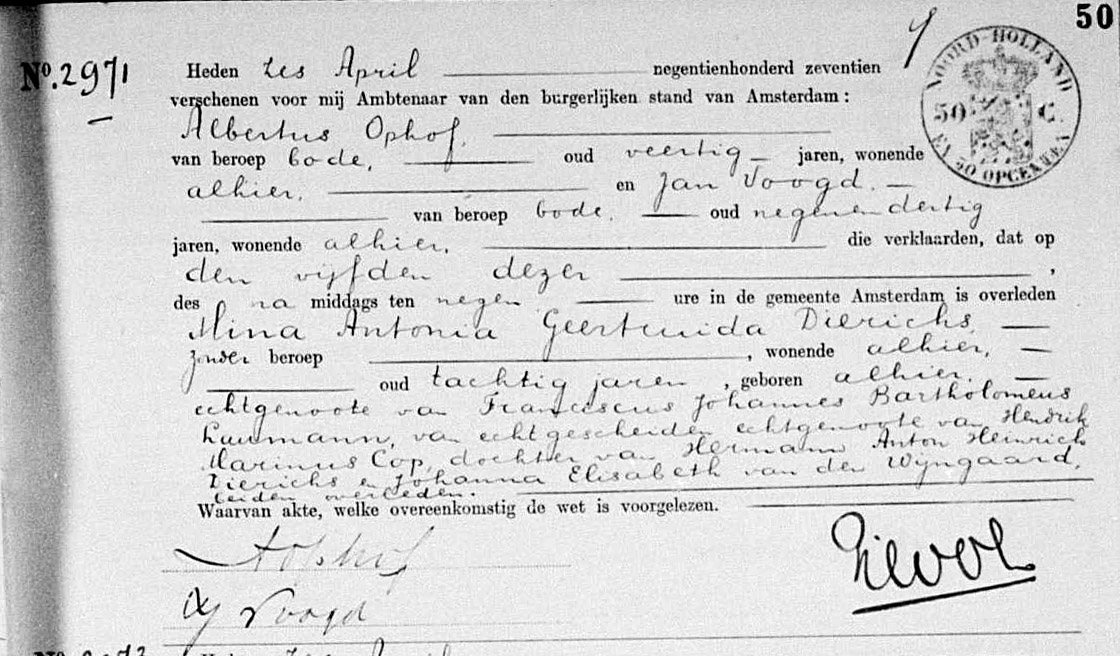 50
No. 2971
Heden zes April negentienhonderd zeventien
verschenen voor mij Ambtenaar van den burgerlijken stand van Amsterdam:
Albertus Ophof,
van beroep bode, oud veertig jaren, wonende
alhier, en Jan Voogd.
van beroep bode, oud negenendertig
jaren, wonende alhier,
die verklaarden, dat op
den vijfden dezer,
des na middags ten negen ure in de gemeente Amsterdam is overleden
Mina Antonia Geertruida Dierichs,
zonder beroep, wonende alhier,
oud tachtig jaren, geboren alhier,
echtgenoote van Franciscus Johannes Bartholomeus
Luumann, van echt gescheiden echtgenoote van Hendrik
Marinus Cop, dochter van Hermann Anton Heinrich
Dierichs en Johanna Elisabeth van den Wijngaard,
beiden overleden.
Waarvan akte, welke overeenkomstig de wet is voorgelezen.
AOphof
Voogd
NOORD-HOLLAND
50 C.
EN 50 OPCENTEN